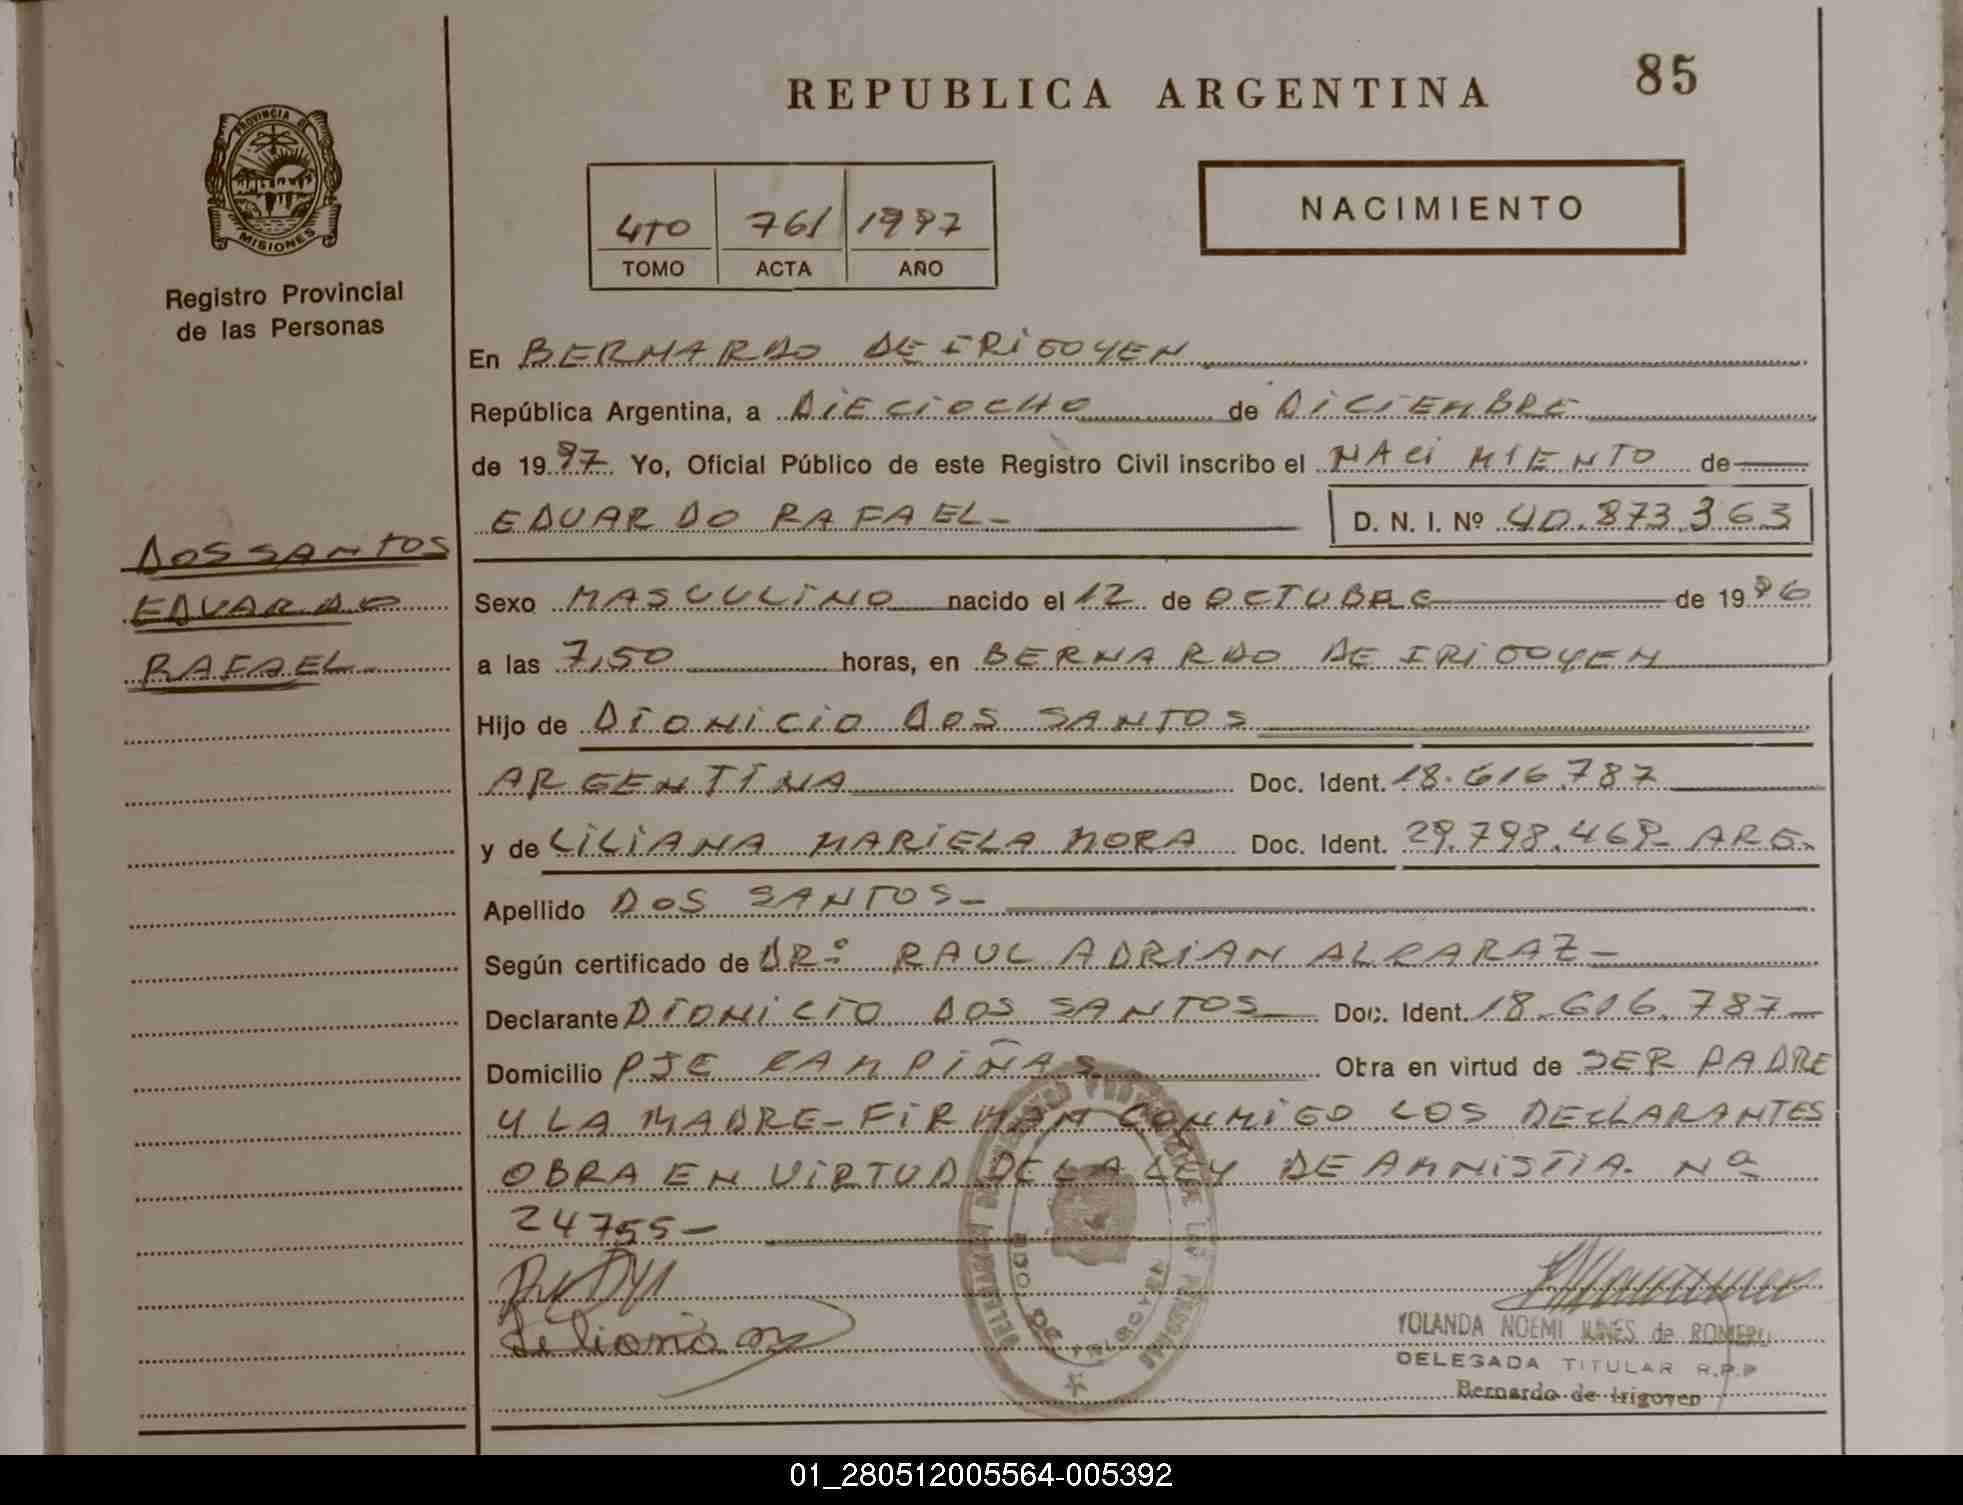 REPUBLICA ARGENTINA
85
PROVINCIA DE
MISIONES
Registro Provincial
de las Personas
4TO 761 1997
TOMO ACTA AÑO
NACIMIENTO
En BERNARDO DE IRIGOYEN
República Argentina, a DIECIOCHO de DICIEMBRE
de 1997 Yo, Oficial Público de este Registro Civil inscribo el NACIMIENTO de
EDUARDO RAFAEL- D. N. I. Nº 40.873.363
DOS SANTOS
EDUARDO
RAFAEL
Sexo MASCULINO nacido el 12 de OCTUBRE de 1996
a las 7,50 horas, en BERNARDO DE IRIGOYEN
Hijo de DIONICIO DOS SANTOS
ARGENTINA Doc. Ident. 18.616.787
y de LILIANA MARIELA MORA Doc. Ident. 29.798.469- ARG.
Apellido DOS SANTOS-
Según certificado de DR: RAUL ADRIAN ALCARAZ-
Declarante DIONICIO DOS SANTOS Doc. Ident. 18.616.787-
Domicilio PJE CAMPIÑAS Obra en virtud de SER PADRE
Y LA MADRE-FIRMAN CONMIGO LOS DECLARANTES
OBRA EN VIRTUD DE LA LEY DE AMNISTIA. Nº
24755-
Liliana
YOLANDA NOEMI NUNES de ROMERO
DELEGADA TITULAR R.P.P
Bernardo de Irigoyen
01_280512005564-005392